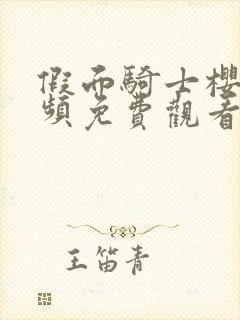 假而騎士櫻
頻免費觀看
王笛青